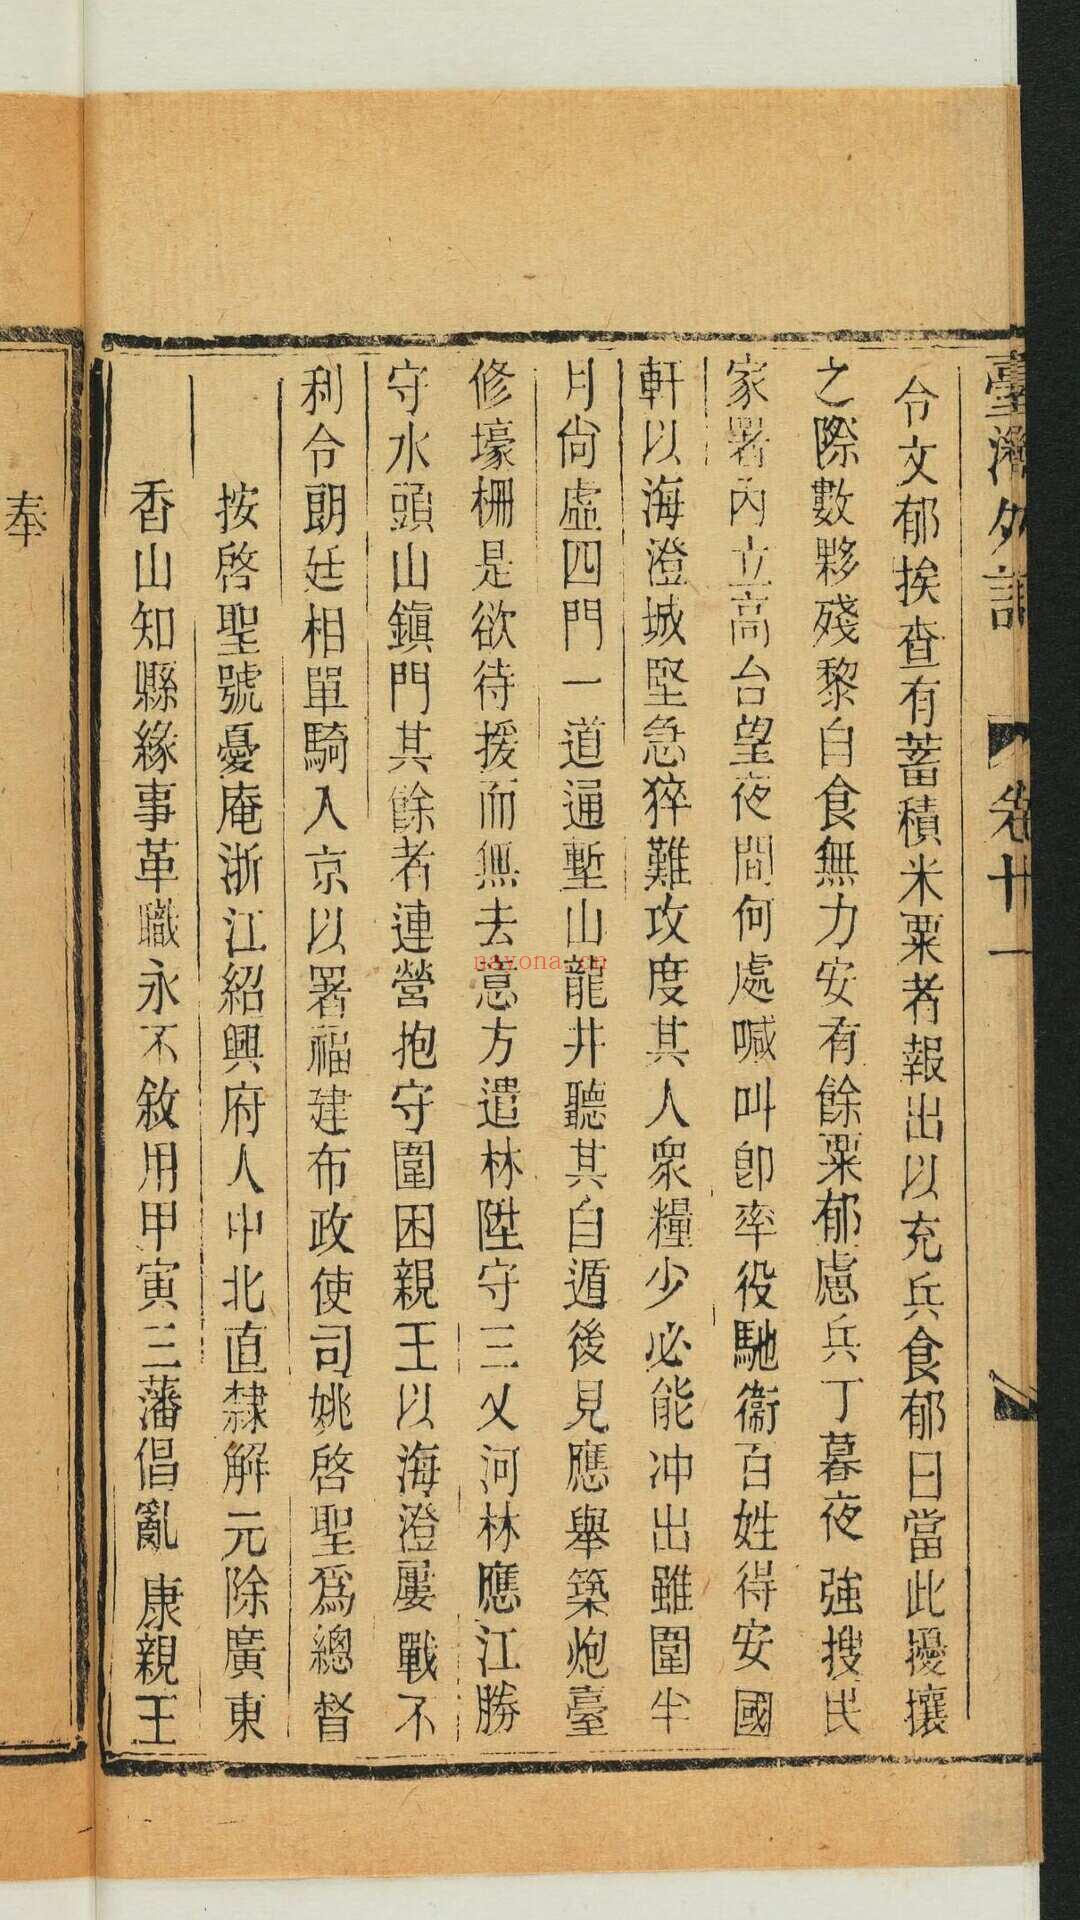 臺灣外記 卷廿一
令文郁挨查有蓄積米粟者報出以充兵食郁曰當此擾攘
之際數夥殘黎自食無力安有餘粟郁慮兵丁暮夜強搜民
家署內立高台望夜間何處喊叫卽率役馳衞百姓得安國
軒以海澄城堅急猝難攻度其人衆糧少必能冲出雖圍半
月尙虛四門一道通塹山龍井聽其自遁後見應舉築炮臺
修壕柵是欲待援而無去意方遣林陞守三乂河林應江勝
守水頭山鎮門其餘者連營抱守圍困親王以海澄屢戰不
利令朗廷相單騎入京以署福建布政使司姚啓聖爲總督
按啓聖號憂庵浙江紹興府人中北直隸解元除廣東
香山知縣緣事革職永不敘用甲寅三藩倡亂 康親王
奉
nayona.cn